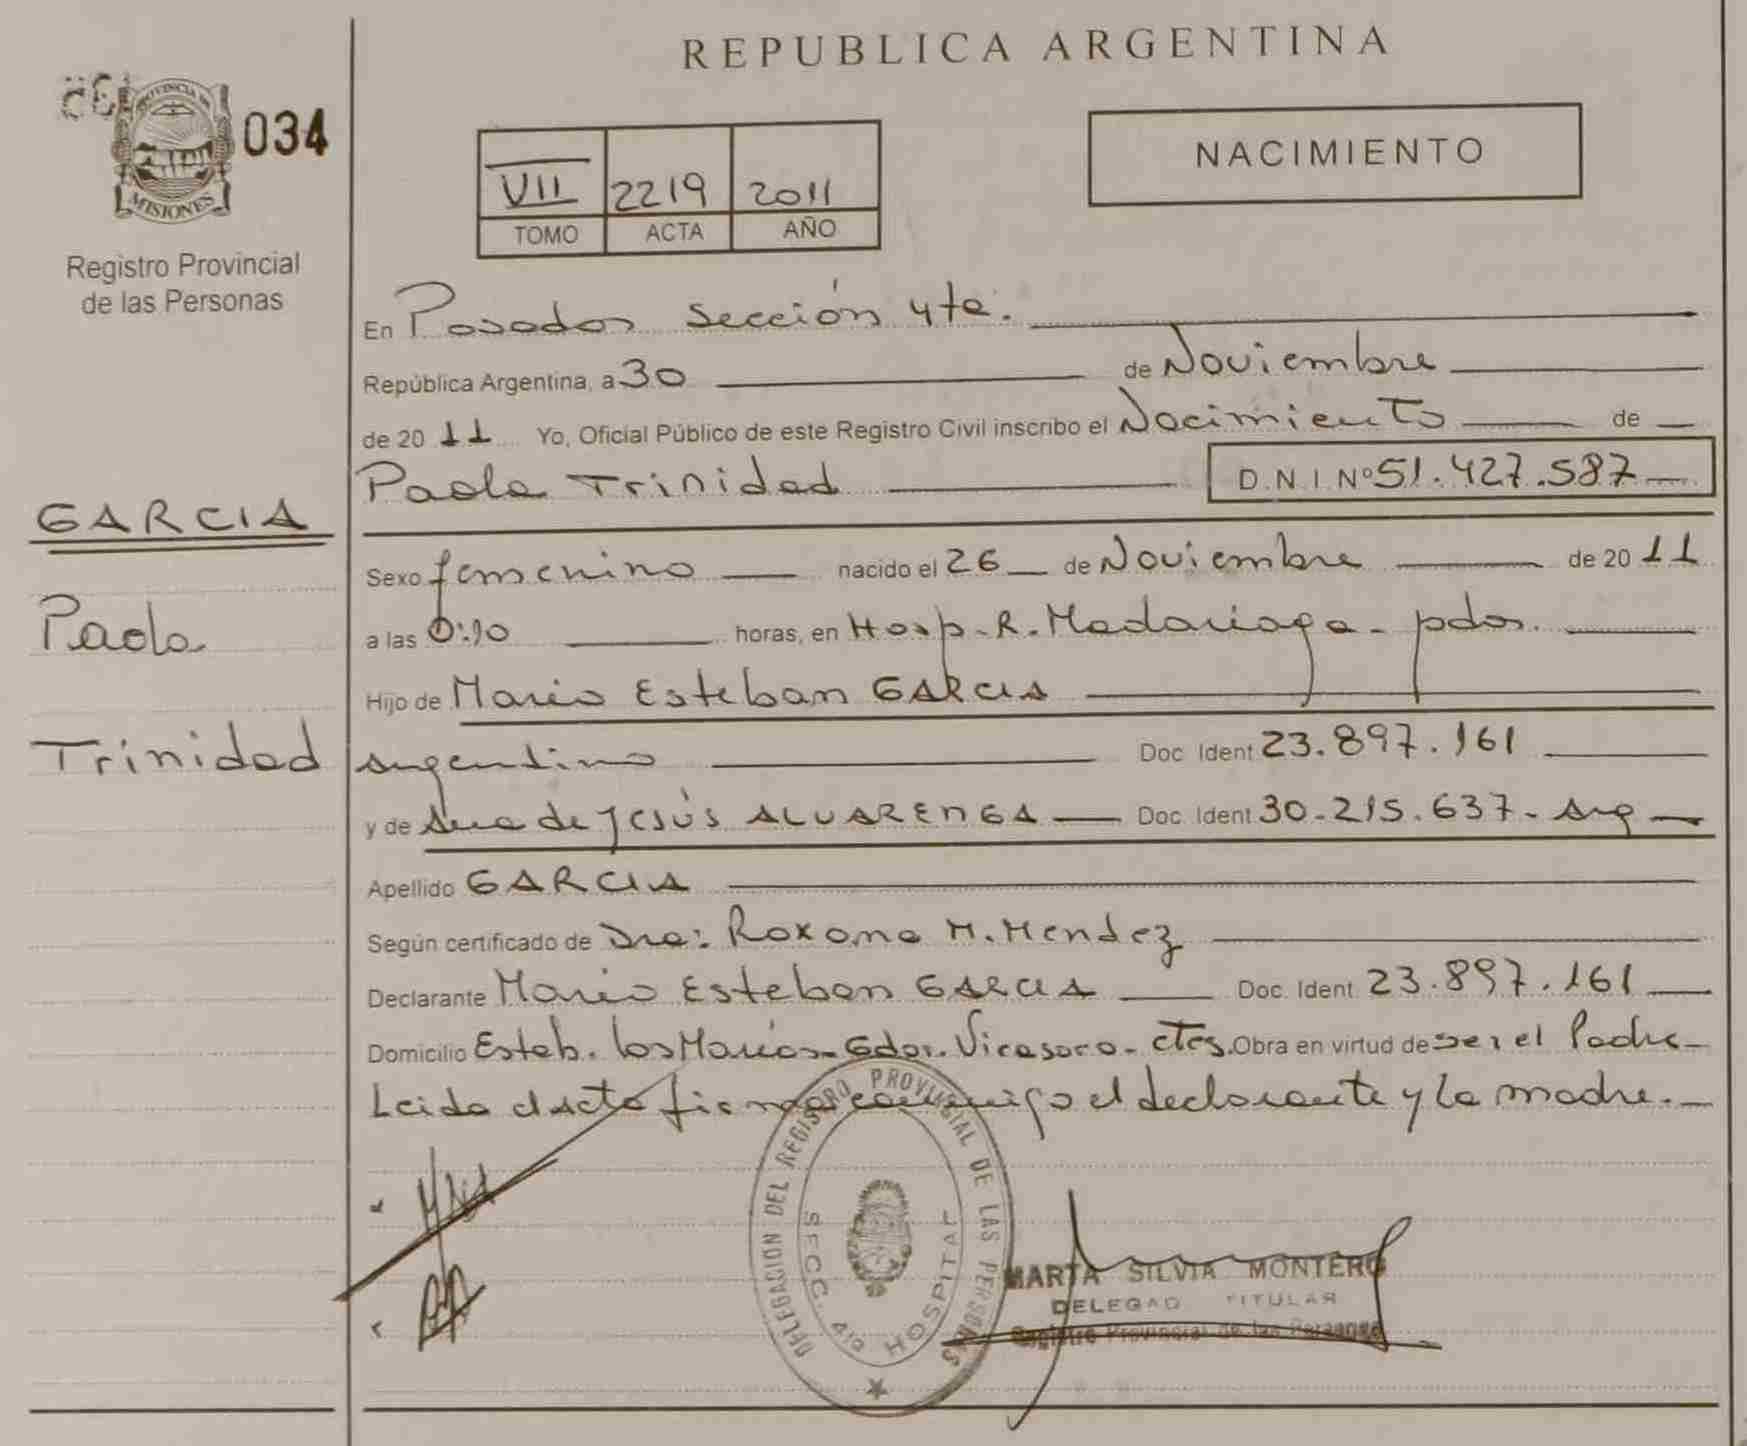 REPUBLICA ARGENTINA
PROVINCIA DE
MISIONES
034
Registro Provincial
de las Personas
NACIMIENTO
VII 2219 2011
TOMO ACTA AÑO
En Posadas sección 4ta.
República Argentina, a 30 de Noviembre
de 2011 Yo, Oficial Público de este Registro Civil inscribo el Nacimiento de
Paola Trinidad D.N.I. Nº 51.427.587
GARCIA
Paola
Trinidad
Sexo femenino nacido el 26 de Noviembre de 2011
a las 0:10 horas, en Hosp. R. Madariaga - pdas.
Hijo de Mario Esteban GARCIA
argentino Doc. Ident 23.897.161
y de Ana de Jesús ALVARENGA Doc. Ident 30.215.637 - Arg
Apellido GARCIA
Según certificado de Dra: Roxana M. Mendez
Declarante Mario Esteban GARCIA Doc. Ident 23.897.161
Domicilio Estab. las Marías - Gdor. Virasoro - Ctes. Obra en virtud de ser el Padre -
Leida el acta firman conmigo el declarante y la madre. -
DELEGACION DEL REGISTRO PROVINCIAL DE LAS PERSONAS
SECC. 4ta HOSPITAL
MARTA SILVIA MONTERO
DELEGAD TITULAR
Registro Provincial de las Personas